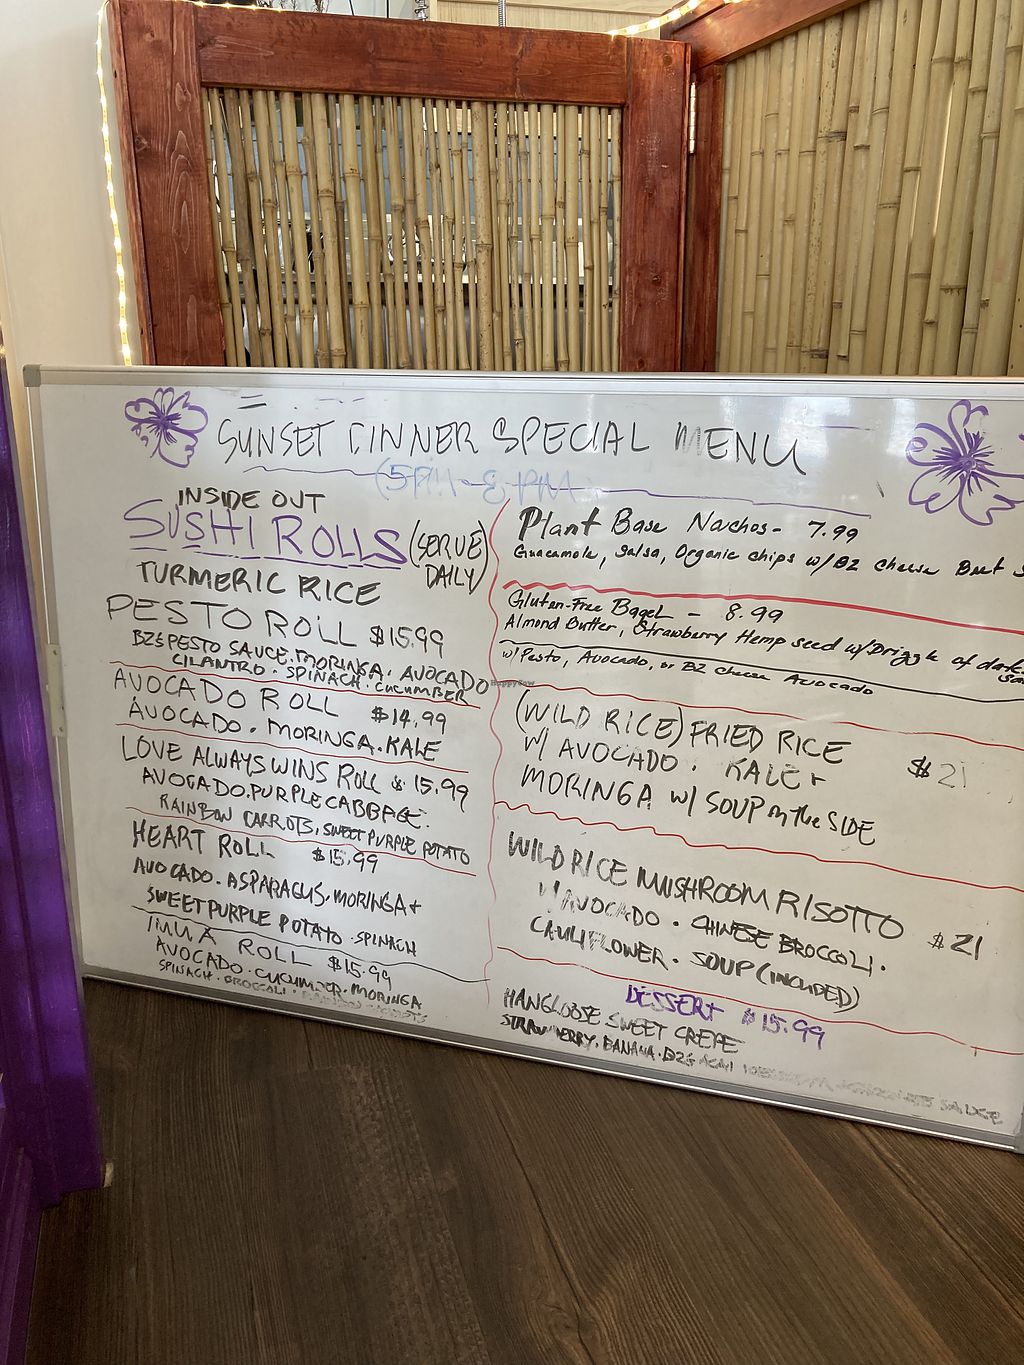 SUNSET DINNER SPECIAL MENU
(5PM-8PM
INSIDE OUT
SUSHI ROLLS (SERVE DAILY)
TURMERIC RICE
PESTO ROLL $15.99
BZ& PESTO SAUCE. MORINGA. AVOCADO
CILANTRO. SPINACH. CUCUMBER
AVOCADO ROLL $14.99
AVOCADO. MORINGA. KALE
LOVE ALWAYS WINS ROLL $15.99
AVOCADO. PURPLE CABBAGE.
RAINBOW CARROTS, SWEET PURPLE POTATO
HEART ROLL $15.99
AVOCADO. ASPARAGUS, MORINGA +
SWEET PURPLE POTATO. SPINACH
IMUA ROLL $15.99
AVOCADO. CUCUMBER. MORINGA
SPINACH. BROCCOLI.
Plant Base Nachos - 7.99
Guacamole, Salsa, Organic chips w/ BZ cheese Beet
Gluten-Free Bagel - 8.99
Almond Butter, Strawberry Hemp seed w/ Drizzle of dark
w/ Pesto, Avocado, or BZ cheese Avocado
HappyCow
(WILD RICE) FRIED RICE
W/ AVOCADO. KALE + $21
MORINGA W/ SOUP on the SIDE
WILD RICE MUSHROOM RISOTTO
W/ AVOCADO. CHINESE BROCCOLI. $21
CAULIFLOWER. SOUP (INCLUDED)
DESSERT $15.99
HANGLOOSE SWEET CREPE
STRAWBERRY. BANANA. BZG ACAI SAUCE